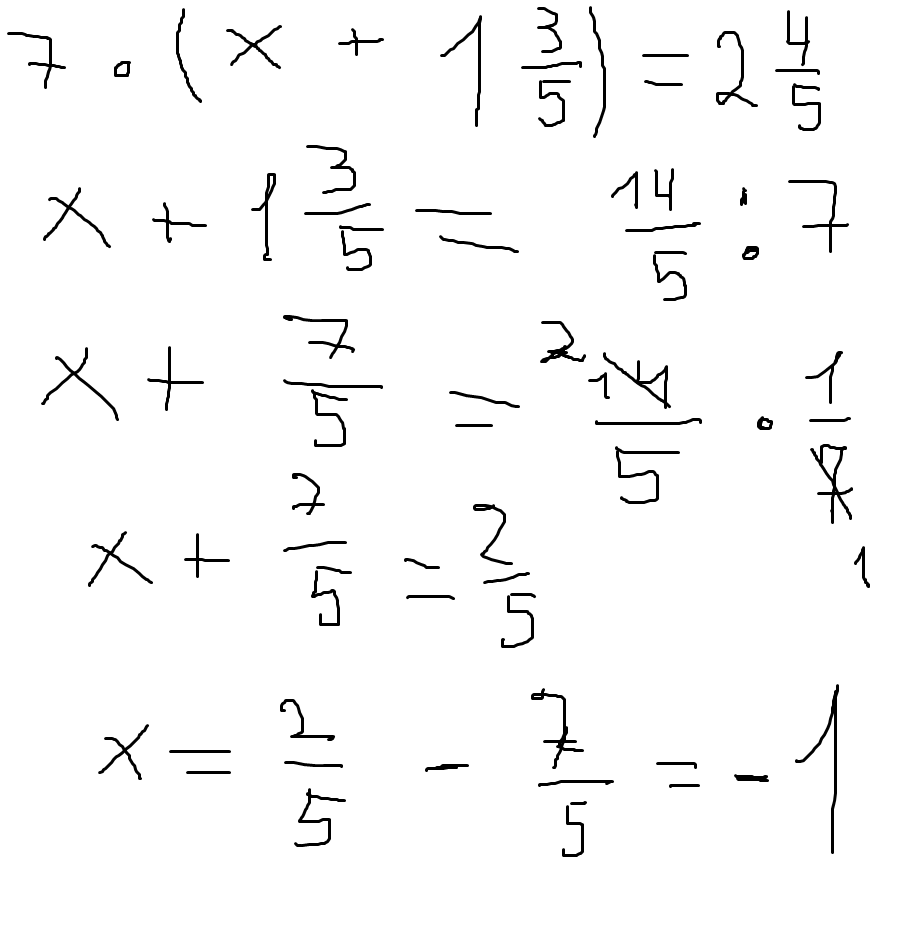 7 · (x + 1 3/5) = 2 4/5
x + 1 3/5 = 14/5 : 7
x + 7/5 = 2 14/5 · 1/7 1
x + 7/5 = 2/5
x = 2/5 - 7/5 = -1